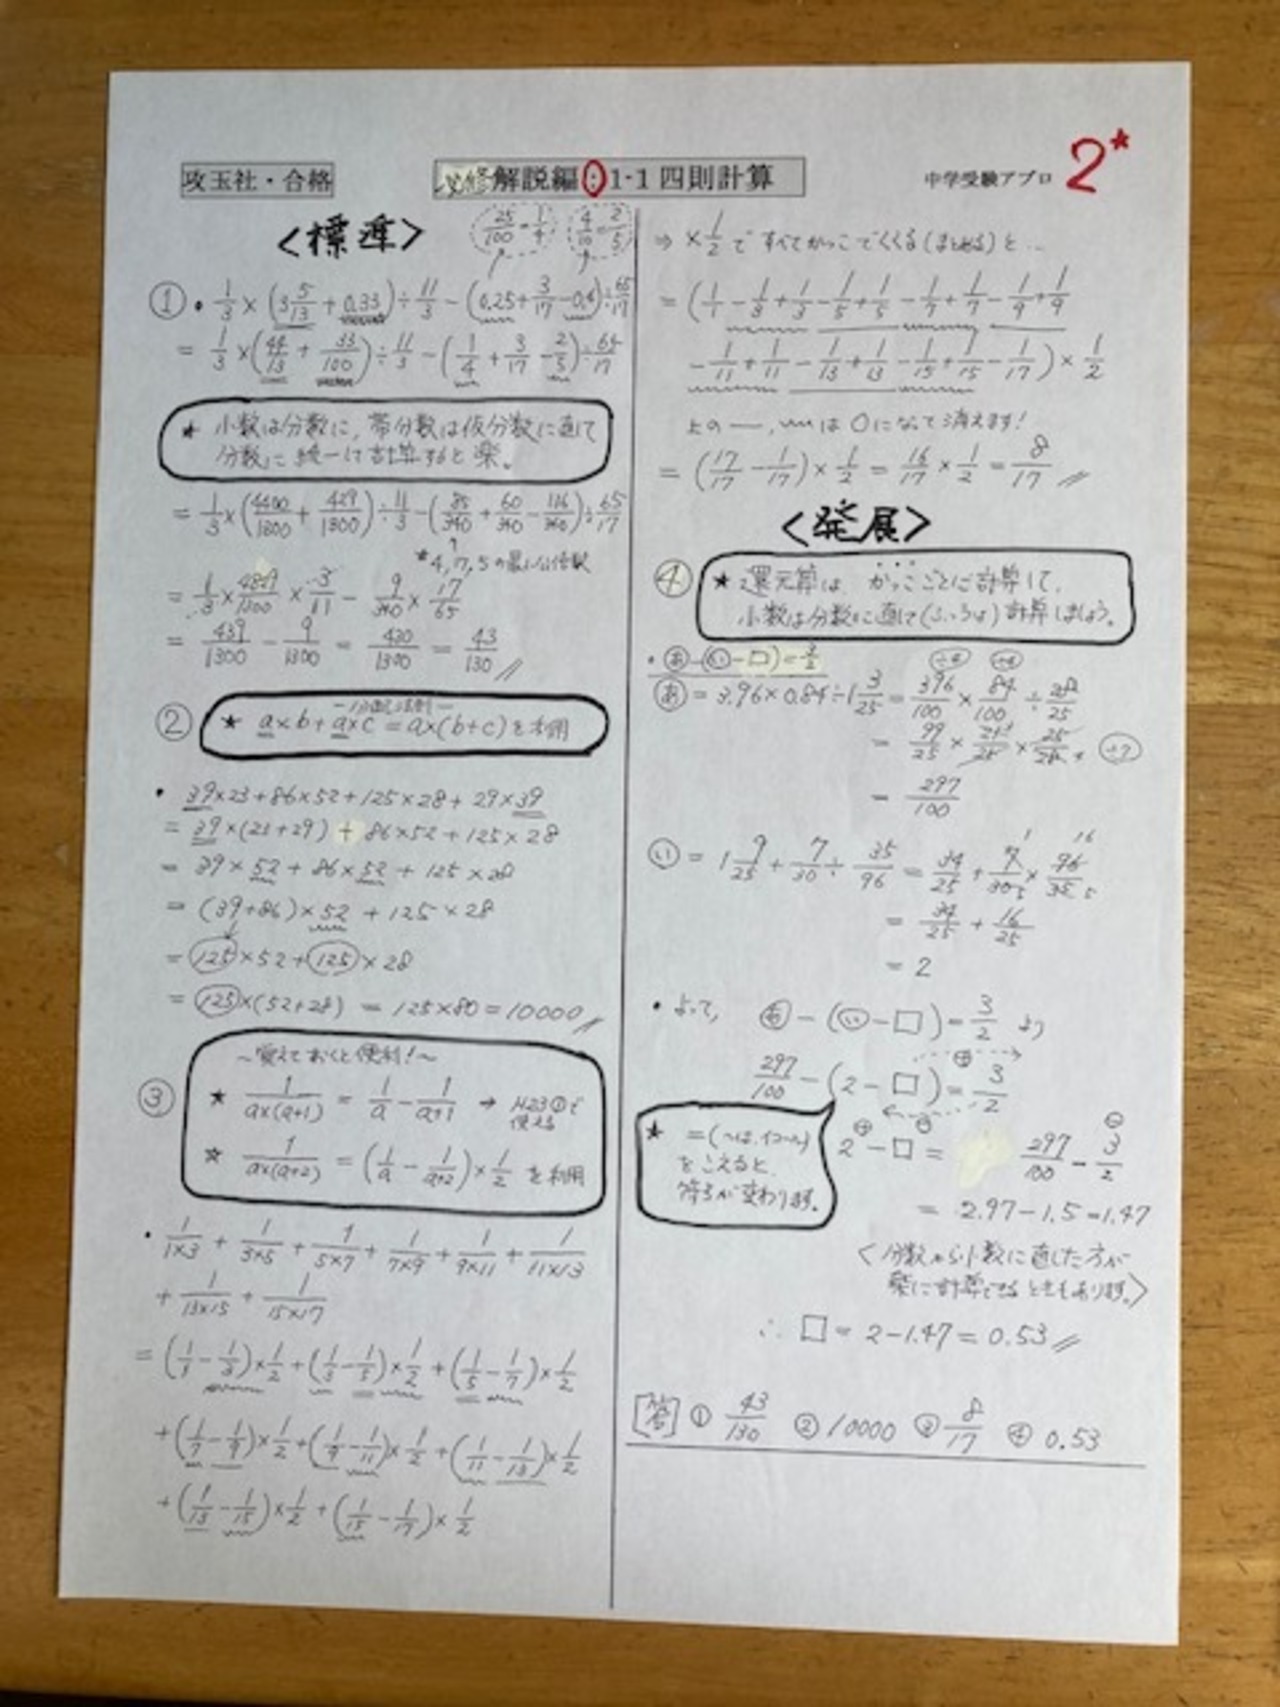 攻玉社・合格
必修解説編:1-1 四則計算
中学受験アプロ
2*
<標準>
25/100=1/4
4/10=2/5
① ・ 1/3×(3 5/13+0.33)÷11/3-(0.25+3/17-0.4)÷65/17
= 1/3×(44/13+33/100)÷11/3-(1/4+3/17-2/5)÷65/17
★ 小数は分数に,帯分数は仮分数に直して
分数に統一して計算すると楽。
= 1/3×(4400/1300+429/1300)÷11/3-(85/340+60/340-136/340)÷65/17
*4,17,5の最小公倍数
= 1/3×4829/1300×3/11-9/340×17/65
= 439/1300-9/1300=430/1300=43/130
② ★ a×b+a×c=a×(b+c)を利用
・ 39×23+86×52+125×28+29×39
= 39×(23+29)+86×52+125×28
= 39×52+86×52+125×28
= (39+86)×52+125×28
= 125×52+125×28
= 125×(52+28)=125×80=10000
~覚えておくと便利!~
③ ★ 1/a×(a+1)=1/a-1/a+1 → H23①で
使える
☆ 1/a×(a+2)=(1/a-1/a+2)×1/2 を利用
・ 1/1×3+1/3×5+1/5×7+1/7×9+1/9×11+1/11×13
+1/13×15+1/15×17
= (1/1-1/3)×1/2+(1/3-1/5)×1/2+(1/5-1/7)×1/2
+(1/7-1/9)×1/2+(1/9-1/11)×1/2+(1/11-1/13)×1/2
+(1/13-1/15)×1/2+(1/15-1/17)×1/2
⇒ ×1/2ですべてかっこでくくる(まとめる)と…
= (1/1-1/3+1/3-1/5+1/5-1/7+1/7-1/9+1/9
-1/11+1/11-1/13+1/13-1/15+1/15-1/17)×1/2
上の―,〰は0になって消えます!
= (17/17-1/17)×1/2=16/17×1/2=8/17
<発展>
④ ★ 還元算は、かっこごとに計算して,
小数は分数に直して(ふつうは)計算しましょう。
・ あ-(い-□)=3/2
÷4 ÷4
あ=3.96×0.84÷1 3/25=396/100×84/100÷28/25
= 99/25×21/25×25/28 ÷7
= 297/100
い=1 9/25+7/30÷35/96=34/25+7/30×96/35
= 34/25+16/25
= 2
・ よって, あ-(い-□)=3/2 より
297/100-(2-□)=3/2
★ =(~は、イコール)
をこえると
符号が変わります。
2-□= 297/100-3/2
= 2.97-1.5=1.47
<分数から小数に直した方が
楽に計算できるときもあります。>
∴ □=2-1.47=0.53
[答] ① 43/130 ② 10000 ③ 8/17 ④ 0.53